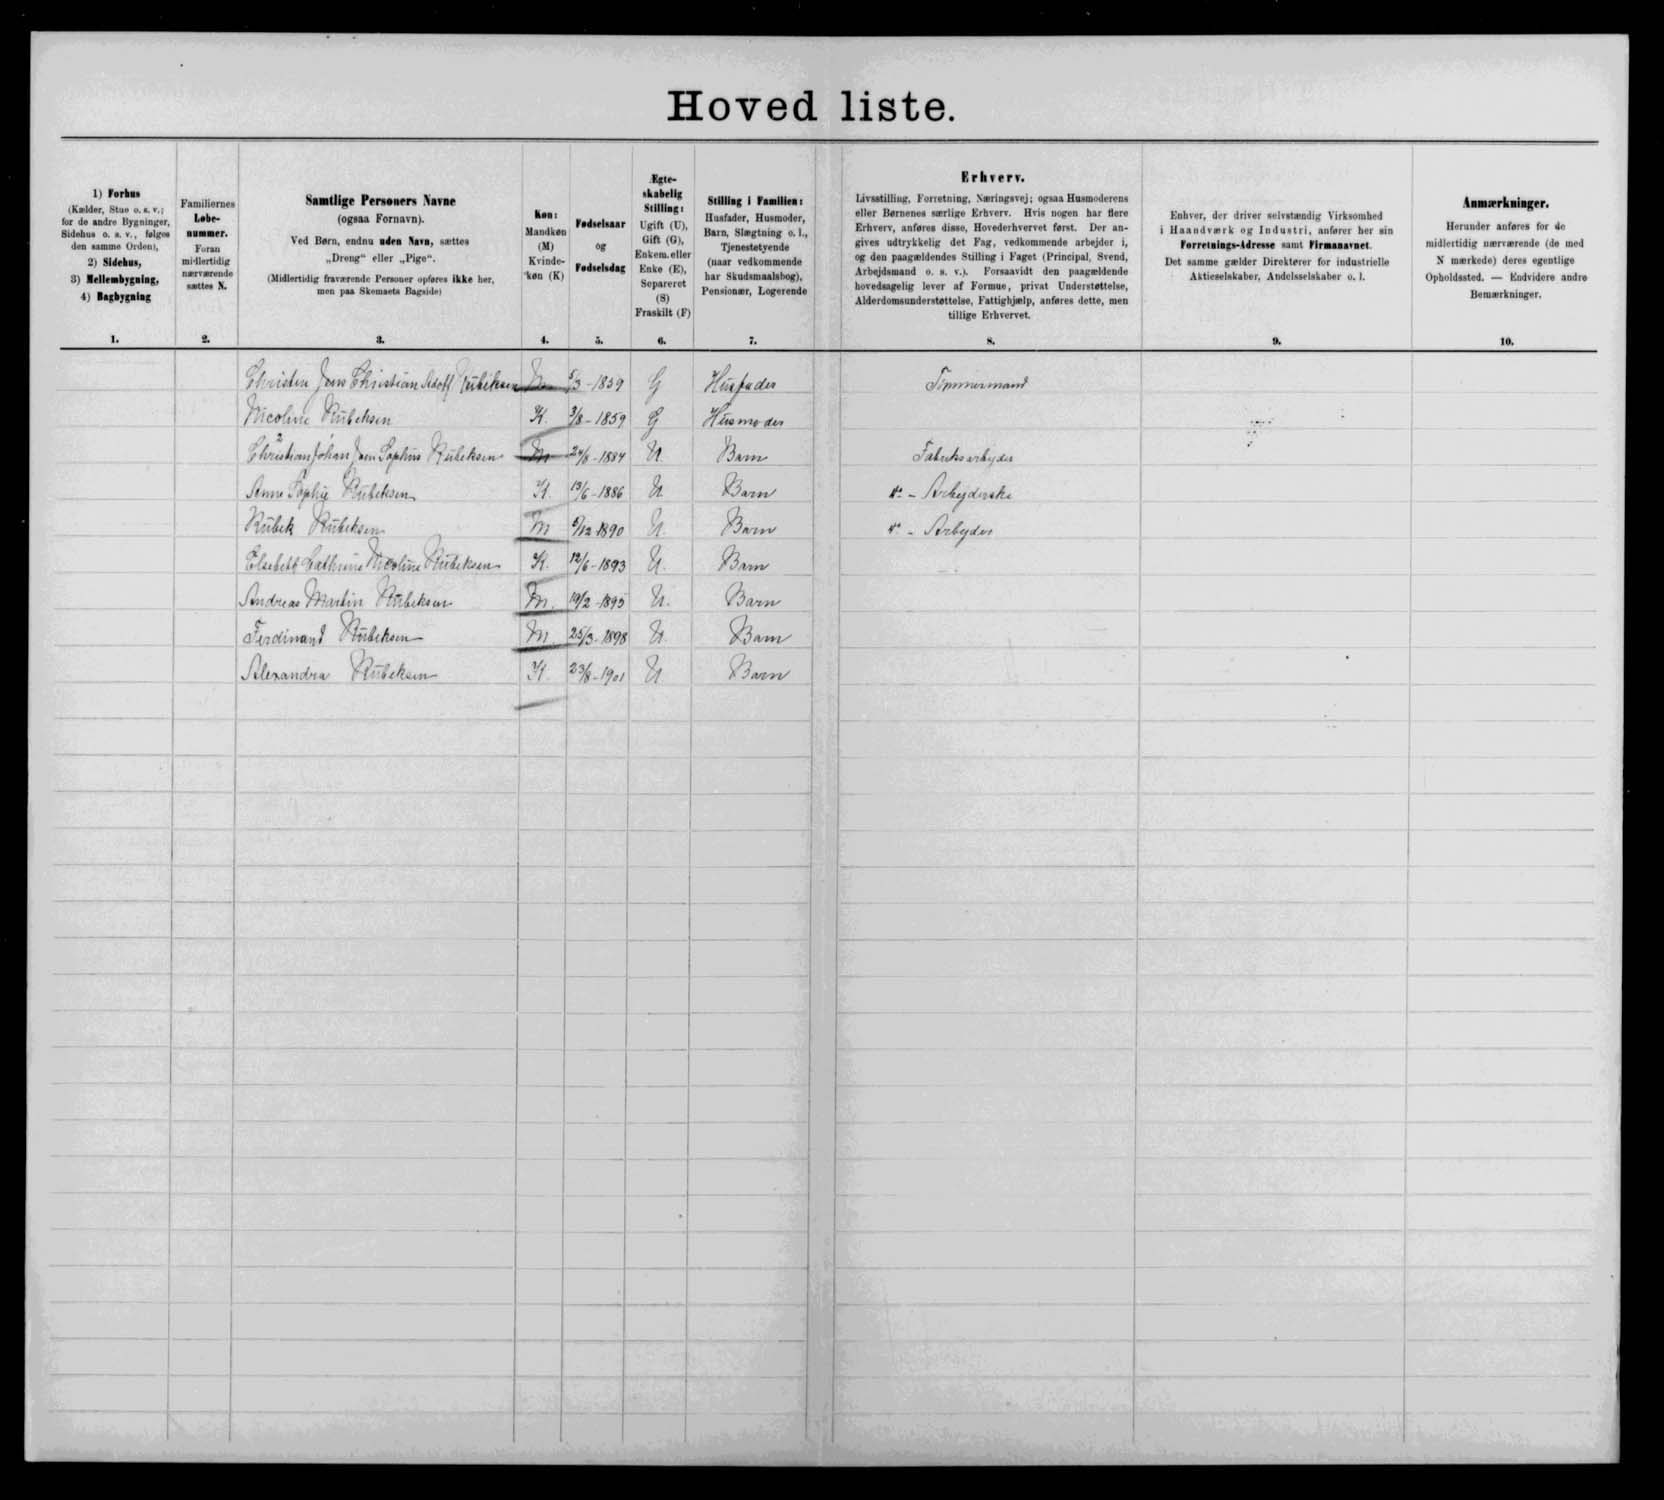 Hoved liste.
1) Forhus
(Kælder, Stue o. s. v.;
for de andre Bygninger,
Sidehus o. s. v., følges
den samme Orden),
2) Sidehus,
3) Mellembygning,
4) Bagbygning
1.
Familiernes
Løbe-
nummer.
Foran
midlertidig
nærværende
sættes N.
2.
Samtlige Personers Navne
(ogsaa Fornavn).
Ved Børn, endnu uden Navn, sættes
„Dreng“ eller „Pige“.
(Midlertidig fraværende Personer opføres ikke her,
men paa Skemaets Bagside)
3.
Køn:
Mandkøn
(M)
Kvinde-
køn (K)
4.
Fødselsaar
og
Fødselsdag
5.
Ægte-
skabelig
Stilling:
Ugift (U),
Gift (G),
Enkem. eller
Enke (E),
Separeret
(S)
Fraskilt (F)
6.
Stilling i Familien:
Husfader, Husmoder,
Barn, Slægtning o. l.,
Tjenestetyende
(naar vedkommende
har Skudsmaalsbog),
Pensionær, Logerende
7.
Erhverv.
Livsstilling, Forretning, Næringsvej; ogsaa Husmoderens
eller Børnenes særlige Erhverv. Hvis nogen har flere
Erhverv, anføres disse, Hovederhvervet først. Der an-
gives udtrykkelig det Fag, vedkommende arbejder i,
og den paagældendes Stilling i Faget (Principal, Svend,
Arbejdsmand o. s. v.). Forsaavidt den paagældende
hovedsagelig lever af Formue, privat Understøttelse,
Alderdomsunderstøttelse, Fattighjælp, anføres dette, men
tillige Erhvervet.
8.
Enhver, der driver selvstændig Virksomhed
i Haandværk og Industri, anfører her sin
Forretnings-Adresse samt Firmanavnet.
Det samme gælder Direktører for industrielle
Aktieselskaber, Andelsselskaber o. l.
9.
Anmærkninger.
Herunder anføres for de
midlertidig nærværende (de med
N mærkede) deres egentlige
Opholdssted. — Endvidere andre
Bemærkninger.
10.
Christen Jens Christian Adolf Rubeksen M 5/3 - 1859 G Husfader Tømmermand
Nicoline Rubeksen K. 3/8 - 1859 G Husmoder
Christian Johan Jens Sophus Rubeksen M 24/8 - 1884 U Barn Fabriksarbejder
Anne Sophie Rubeksen K. 13/6 - 1886 U Barn do - Arbejderske
Rubek Rubeksen M 9/12 1890 U. Barn do - Arbejder
Elsebeth Cathrine Nicoline Rubeksen K. 12/6 - 1893 U. Barn
Andreas Martin Rubeksen M. 19/2 - 1895 U. Barn
Ferdinand Rubeksen M. 25/3 - 1898 U Barn
Alexandra Rubeksen K. 23/8 - 1901 U Barn